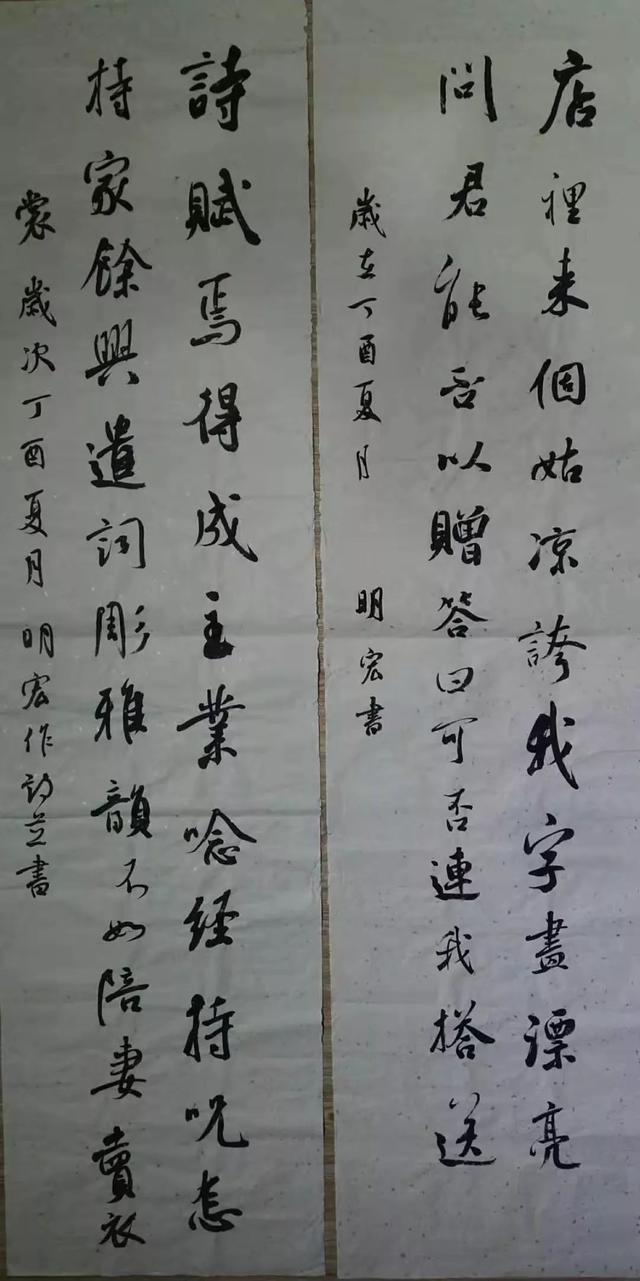 店裡来個姑凉誇我字畫漂亮
問君能否以贈答曰可否連我搭送
歲在丁酉夏月 明宏書
詩賦焉得成主業唸經持呪怎
持家餘興遣詞彫雅韻不如陪妻賣衣
裳 歲次丁酉夏月明宏作詩並書